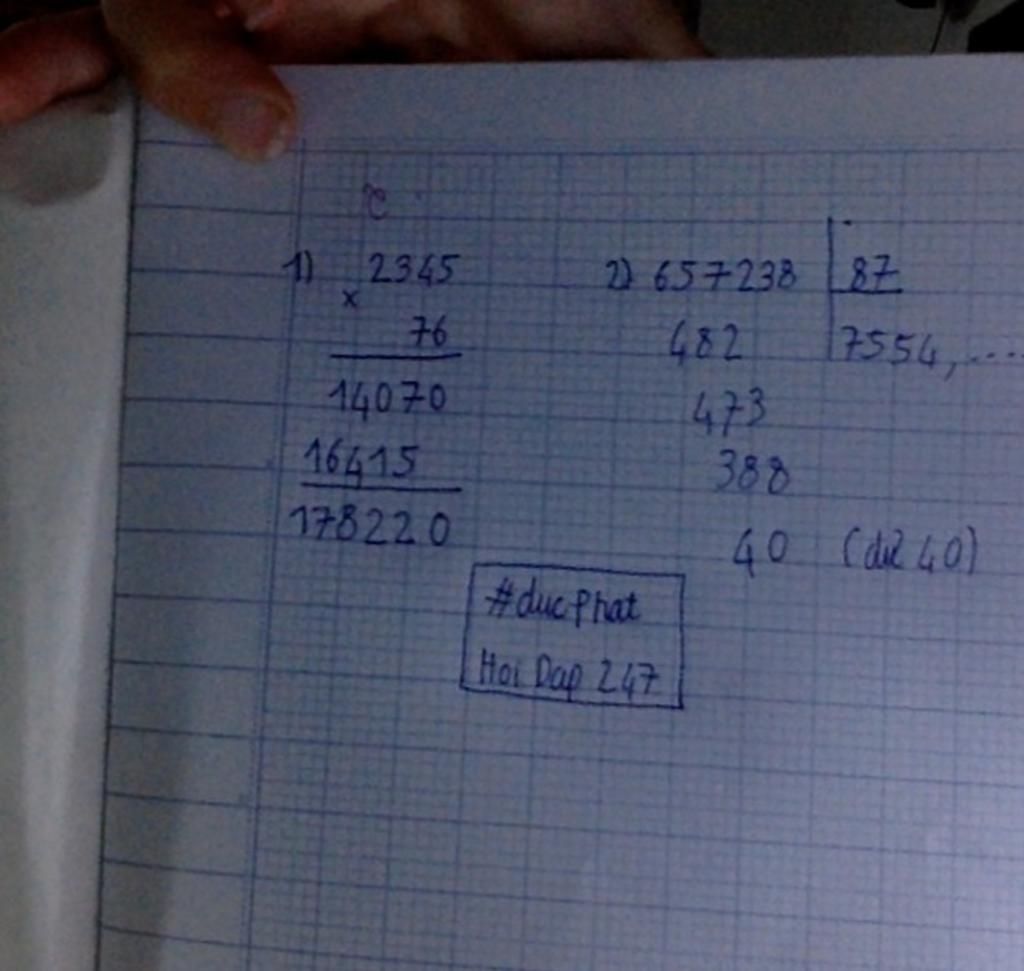 1) 2345
x
76
14070
16415
178220
2) 657238 87
482 7554, ....
473
388
40 (dư 40)
#ducphat
Hoi Dap 247